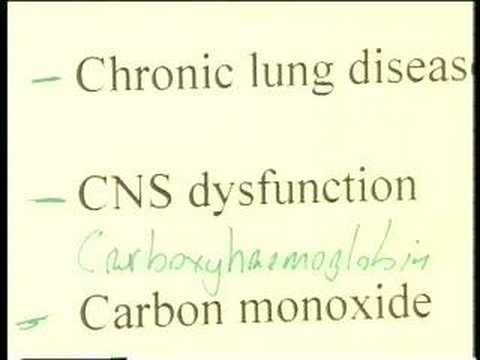 – Chronic lung diseas
– CNS dysfunction
Carboxyhaemoglobin
– Carbon monoxide